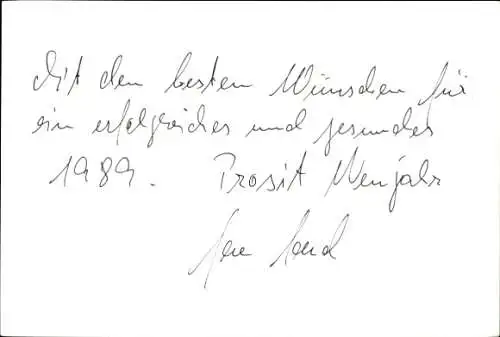 Mit den besten Wünschen für
ein erfolgreiches und gesundes
1989. Prosit Neujahr